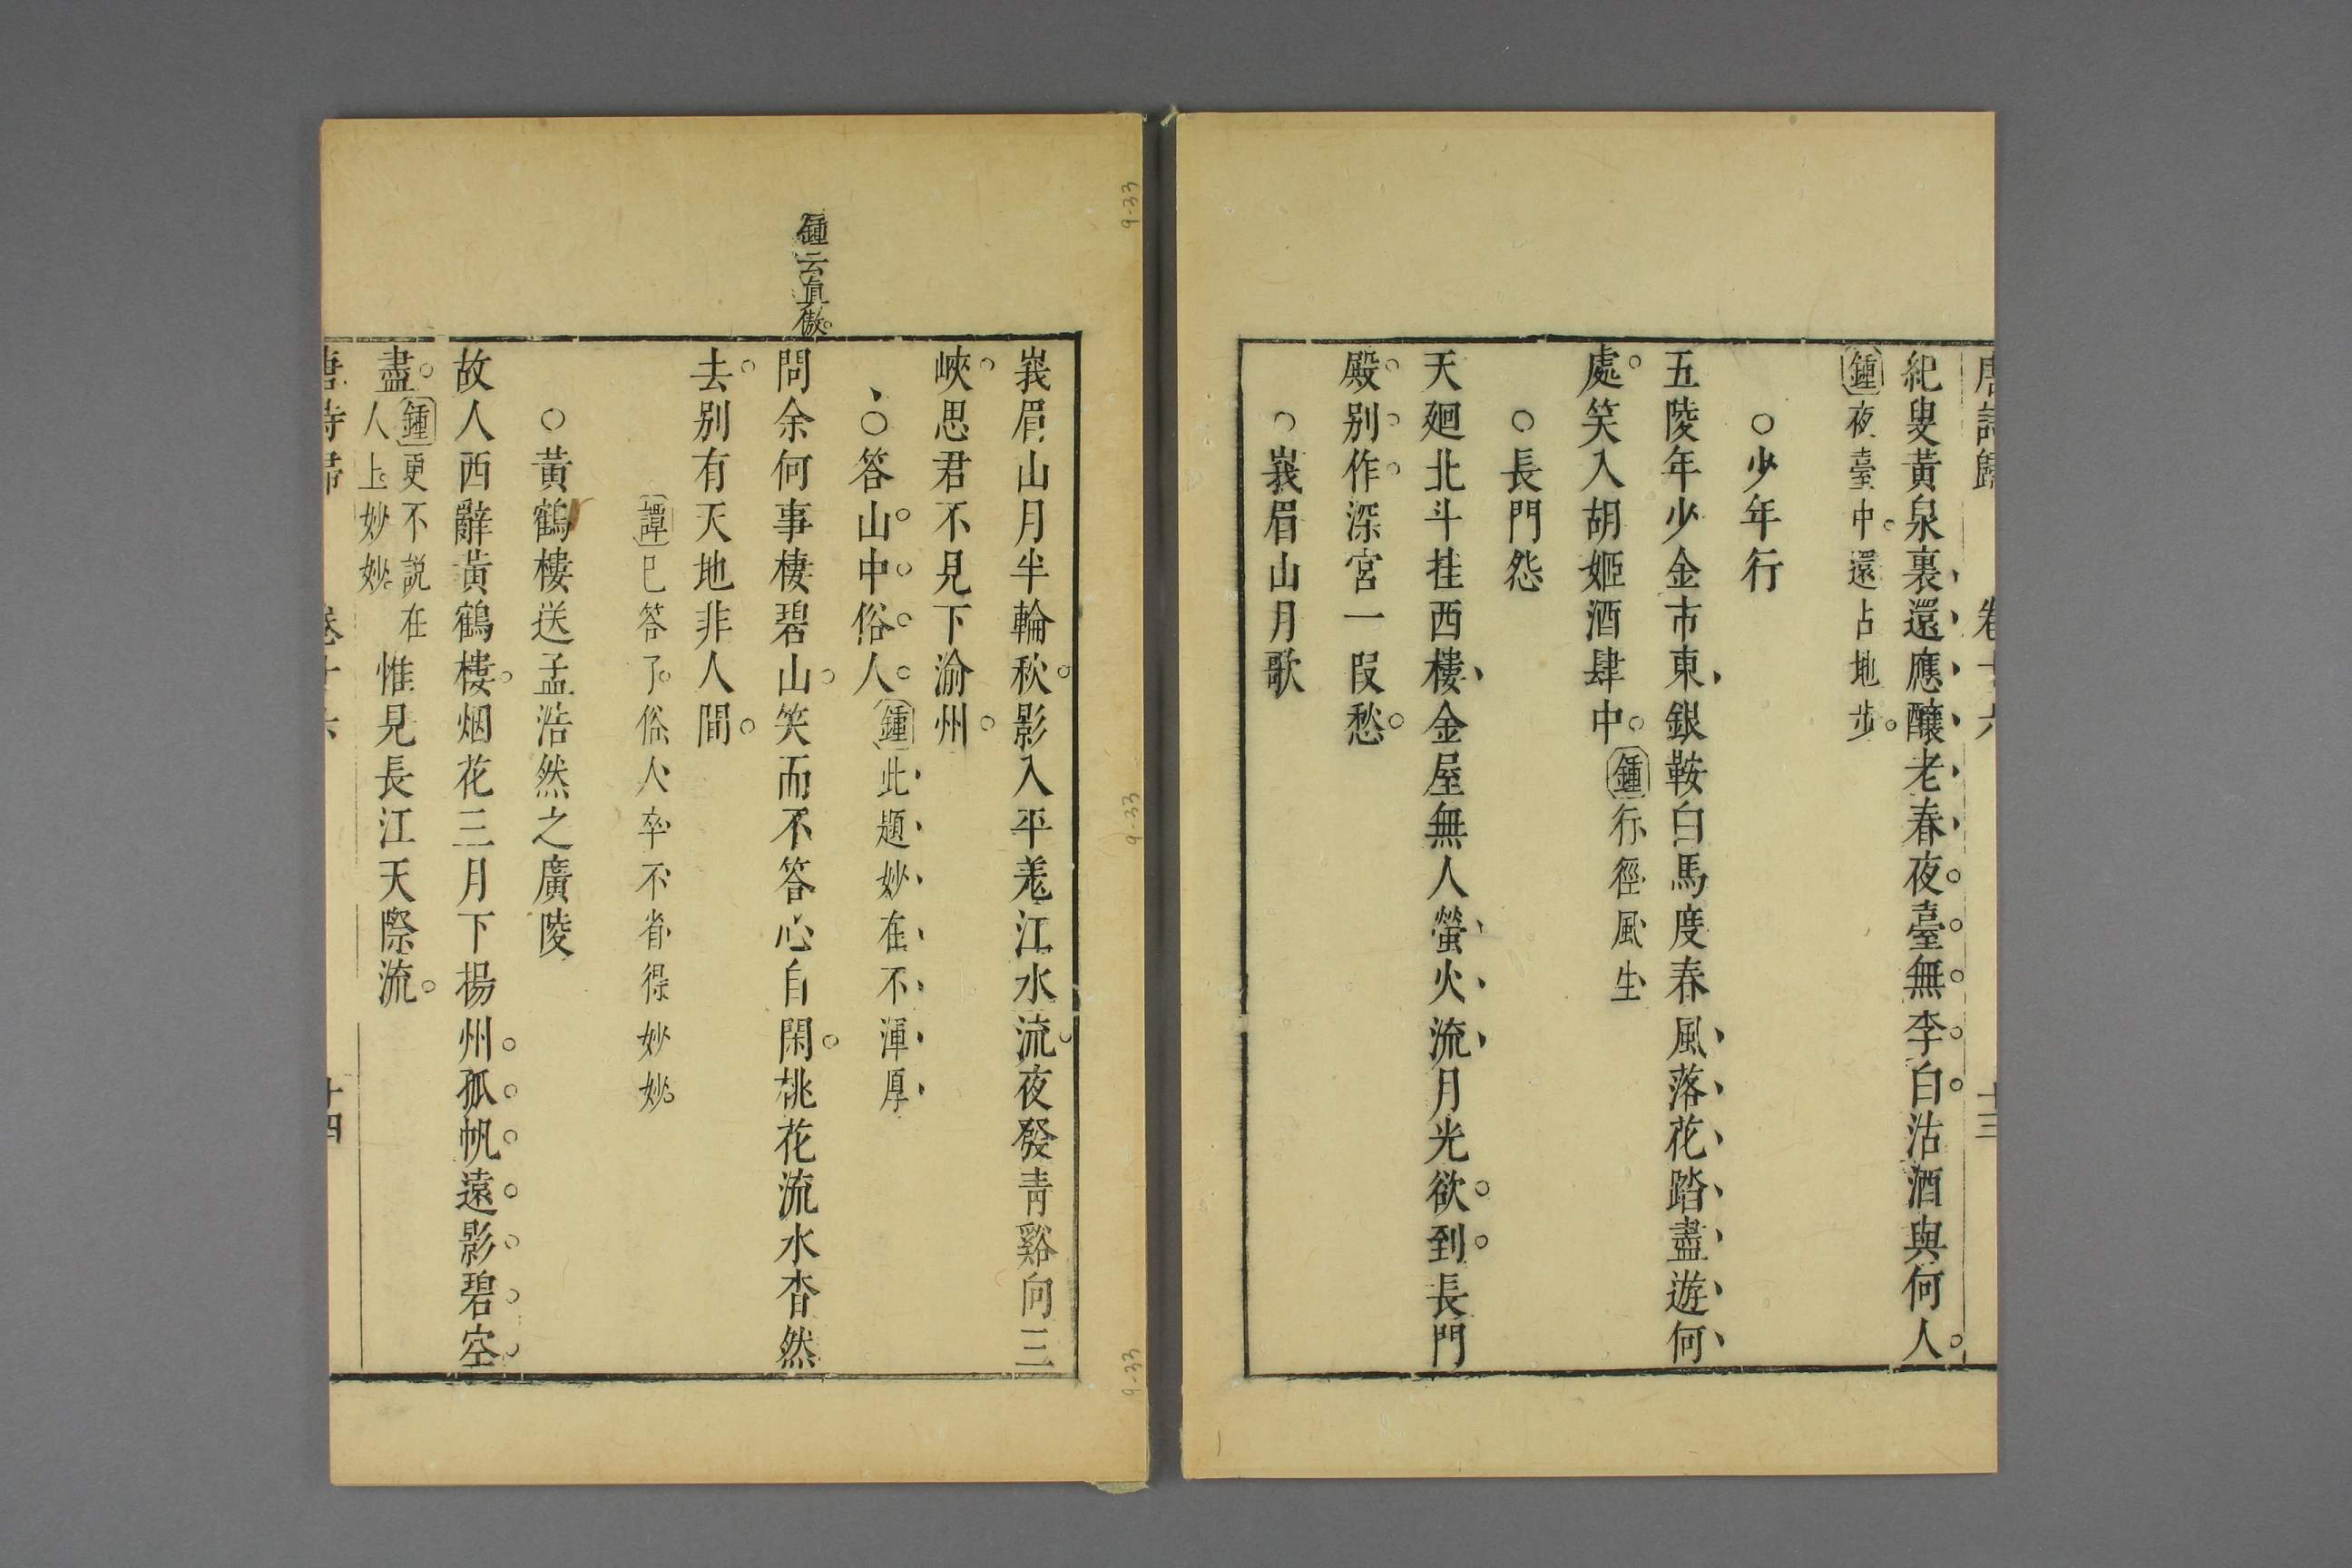 唐詩歸 卷十六 十三
紀叟黃泉裏還應釀老春夜臺無李白沽酒與何人
鍾夜臺中還占地步
○少年行
五陵年少金市東銀鞍白馬度春風落花踏盡遊何
處笑入胡姬酒肆中鍾行徑風生
○長門怨
天廻北斗挂西樓金屋無人螢火流月光欲到長門
殿别作深宮一段愁
○峩眉山月歌
峩眉山月半輪秋影入平羌江水流夜發青谿向三
峽思君不見下渝州
○答山中俗人鍾此題妙在不渾厚
鍾云眞傲
問余何事棲碧山笑而不答心自閑桃花流水杳然
去别有天地非人間
譚已答了俗人卒不省得妙妙
○黃鶴樓送孟浩然之廣陵
故人西辭黃鶴樓烟花三月下揚州孤帆遠影碧空
盡鍾更不說在人上妙妙惟見長江天際流
唐詩歸 卷十六 十四
9-33
9-33
9-33